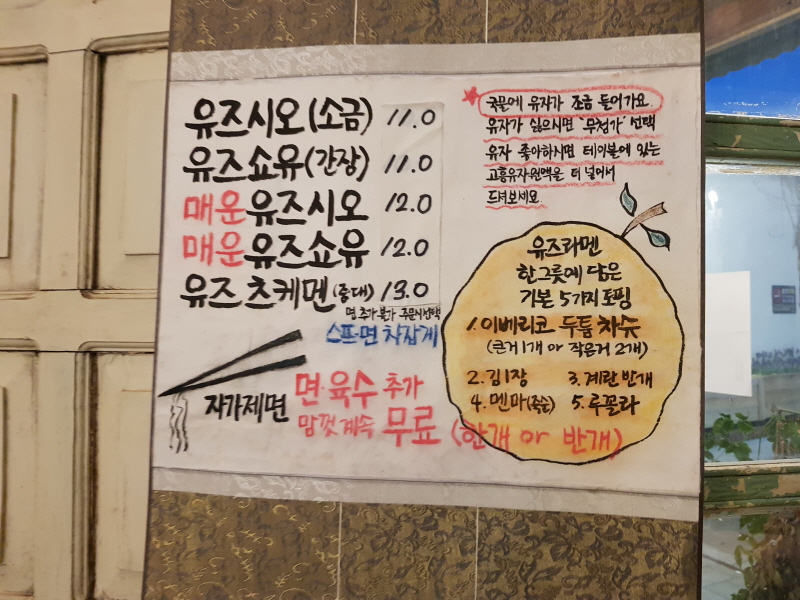 유즈시오(소금) 11.0
유즈쇼유(간장) 11.0
매운유즈시오 12.0
매운유즈쇼유 12.0
유즈츠케멘(중대) 13.0
면추가불가 주문시선택
스프·면 차갑게
자가제면
면·육수 추가
맘껏 계속 무료 (한개 or 반개)
국물에 유자가 조금 들어가요
유자가 싫으시면 '무첨가' 선택
유자 좋아하시면 테이블에 있는
고흥유자원액을 더 넣어서
드셔보세요.
유즈라멘
한그릇에 담은
기본 5가지 토핑
1. 이베리코 두툼 차슈
(큰거1개 or 작은거 2개)
2. 김1장 3. 계란 반개
4. 멘마(죽순) 5. 루꼴라